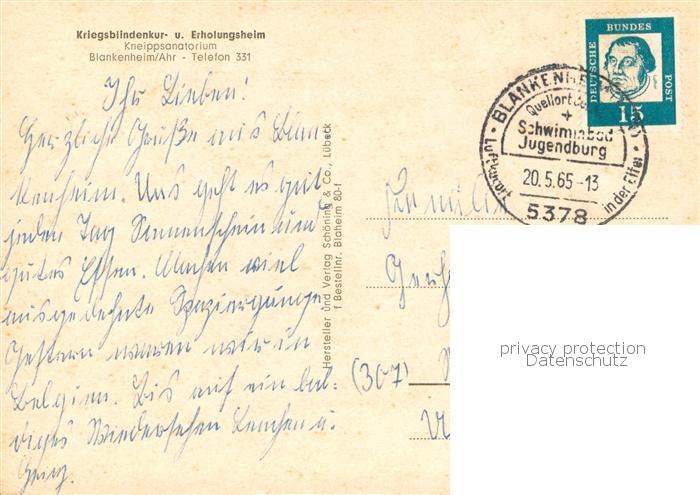 Kriegsblindenkur- u. Erholungsheim
Kneippsanatorium
Blankenheim/Ahr - Telefon 331
Ihr Lieben!
Herzliche Grüße aus Blan-
kenheim. Uns geht es gut
jeden Tag Sonnenschein und
gutes Essen. Machen viel
ausgedehnte Spaziergänge.
Gestern waren wir in
Belgien. Bis auf ein bal-
diges Wiedersehen Lenchen u.
Heinz.
Hersteller und Verlag Schöning & Co., Lübeck
f Bestellnr. Blaheim 80-f
DEUTSCHE BUNDES POST
15
BLANKENHEIM
Quellort der
+
Schwimmbad
Jugendburg
Luftkurort
20.5.65-13
in der Eifel
5378
Familie
Gerh
(307)
privacy protection
Datenschutz